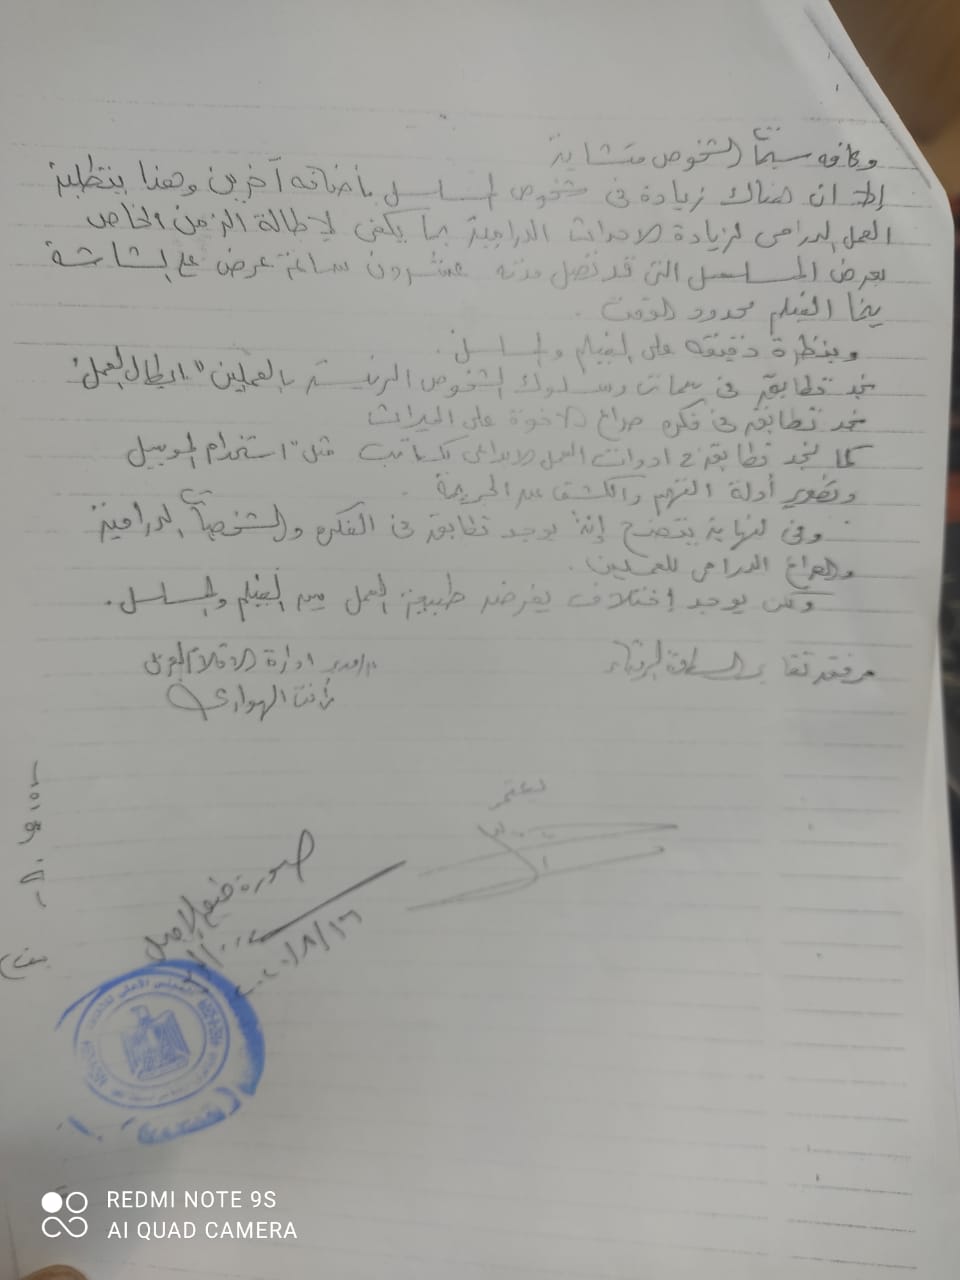 وكافه سيمات الشخوص متشابة
إلا ان هناك زيادة فى شخوص المسلسل بأضافه آخرين وهذا يتطلبة
العمل الدرامى لزيادة الاحداث الدرامية بما يكفى لإطالة الزمن الخاص
بعرض المسلسل التى قد تصل مدته عشرون ساعة عرض على الشاشة
بينما الفيلم محدود الوقت .
وبنظرة دقيقه على الفيلم والمسلسل .
نجد تطابق فى سمات وسلوك الشخوص الرئيسية بالعملين " ابطال العمل "
نجد تطابق فى فكره صراع الاخوة على الميراث
كما نجد تطابق فى ادوات العمل الابداعى ككاتب مثل " استخدام الموبيل
وتصوير أدلة التهم والكشف عن الجريمة .
وفى النهاية يتضح إنة يوجد تطابق فى الفكره والشخصيات الدرامية
والصراع الدرامى للعملين .
ولكن يوجد إختلاف يفرضه طبيعة العمل بين الفيلم والمسلسل .
مدير ادارة
الهوارى
يعتمد
صورة طبق الاصل
٢٠٢٠/٨/١٦
المجلس الأعلى للثقافة
REDMI NOTE 9S
AI QUAD CAMERA